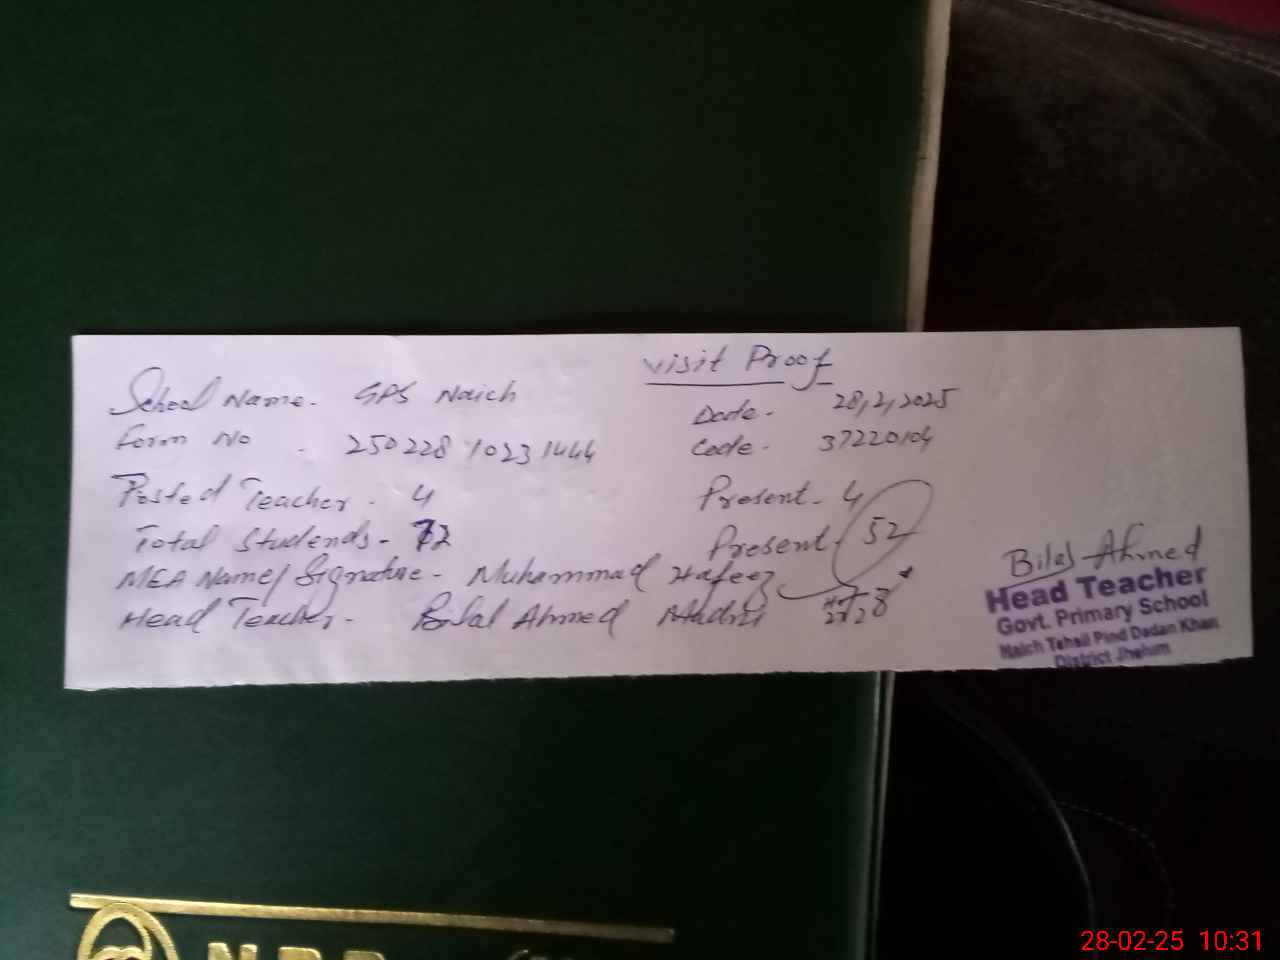 Visit Proof
School Name. GPS Naich
Date. 28,2,2025
Form No. 250228 10231444
Code. 37220104
Posted Teacher. 4
Present. 4
Total Students. 72
Present 52
MEA Name/Signature. Muhammad Hafeez
Head Teacher. Bilal Ahmed
Bilal Ahmed
Head Teacher
Govt. Primary School
Naich Tehsil Pind Dadan Khan
District Jhelum
28-02-25 10:31